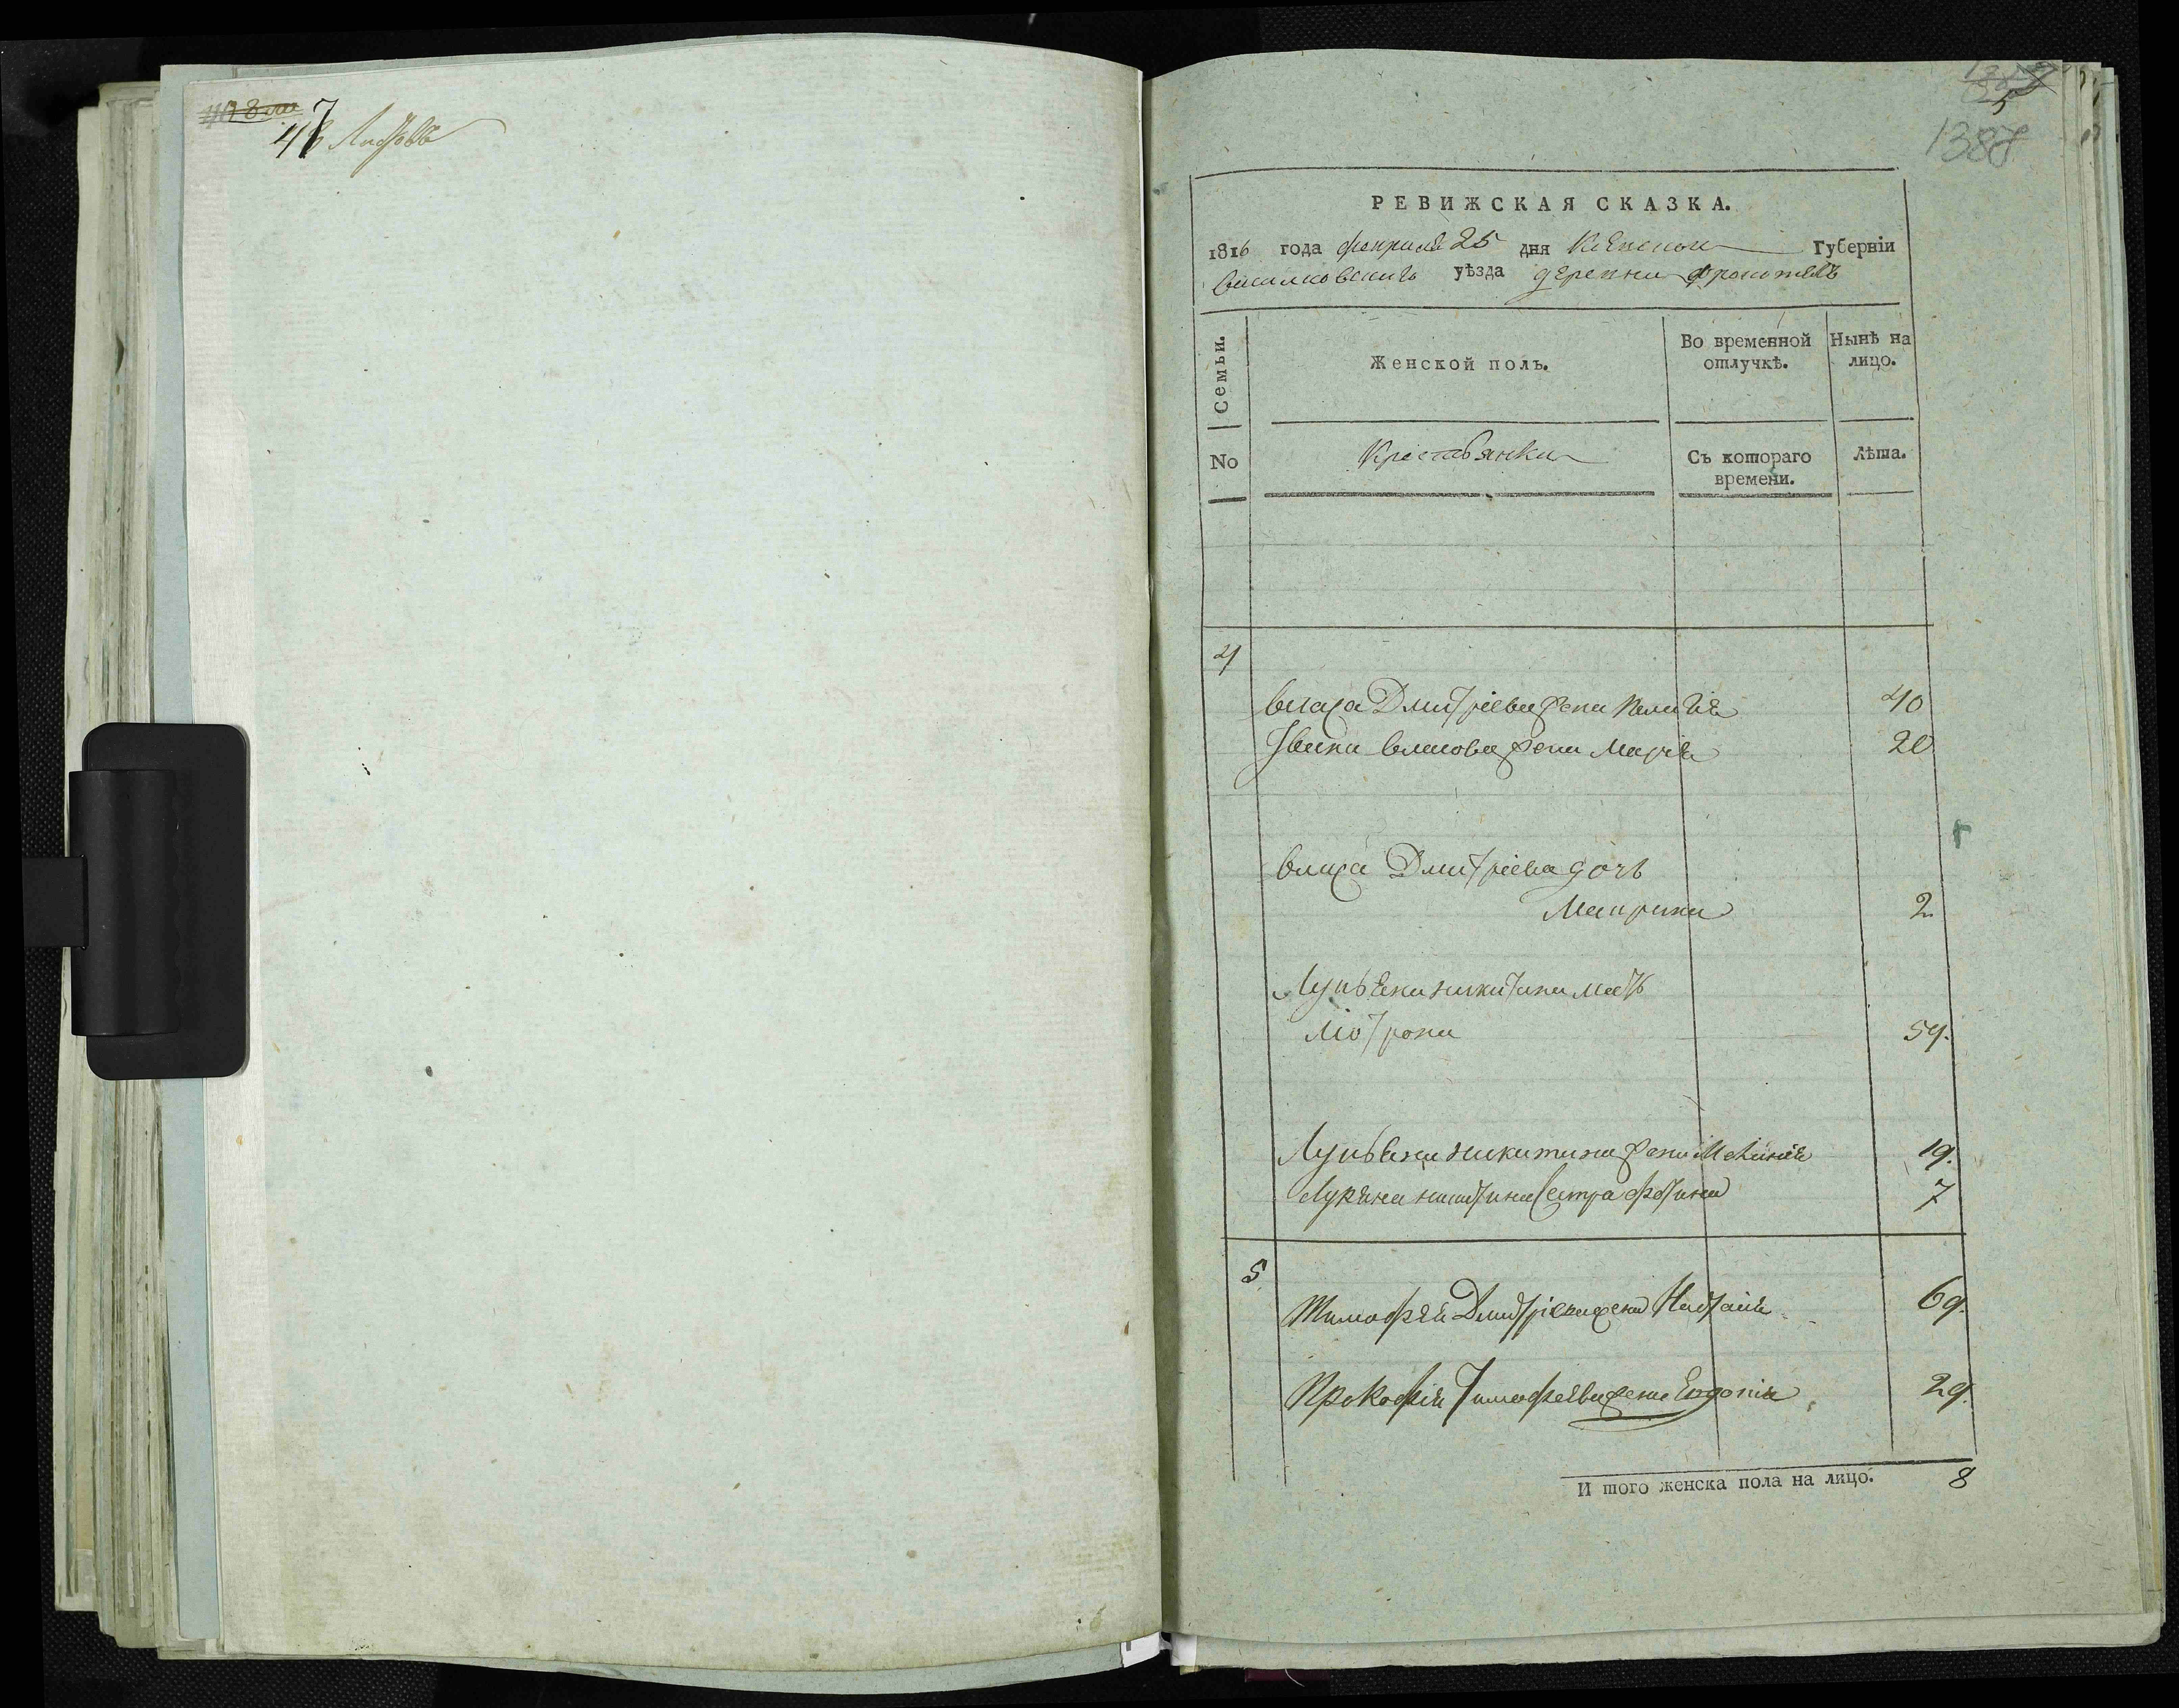 47
1388
РЕВИЖСКАЯ СКАЗКА.
1816 года февраля 25 дня Кіевской Губерніи
Васильковскаго уѣзда деревни
Семьи.
Женской полъ.
Во временной отлучкѣ.
Нынѣ на лицо.
No
Крестьянки
Съ котораго времени.
Лѣта.
4
Власа Дмитріева жена 40
Ивана Власова жена Марія 20
Власа Дмитріева дочь
Марина 2
Лукьяна Никитина мать
Мотрона 54.
Лукьяна Никитина жена Меланія 19.
Лукяна Никитина сестра Фотина 7
5
Тимофѣя Дмитріева жена Наталія 69.
Прокофія Тимофеева жена Евдокія 29.
И того женска пола на лицо. 8